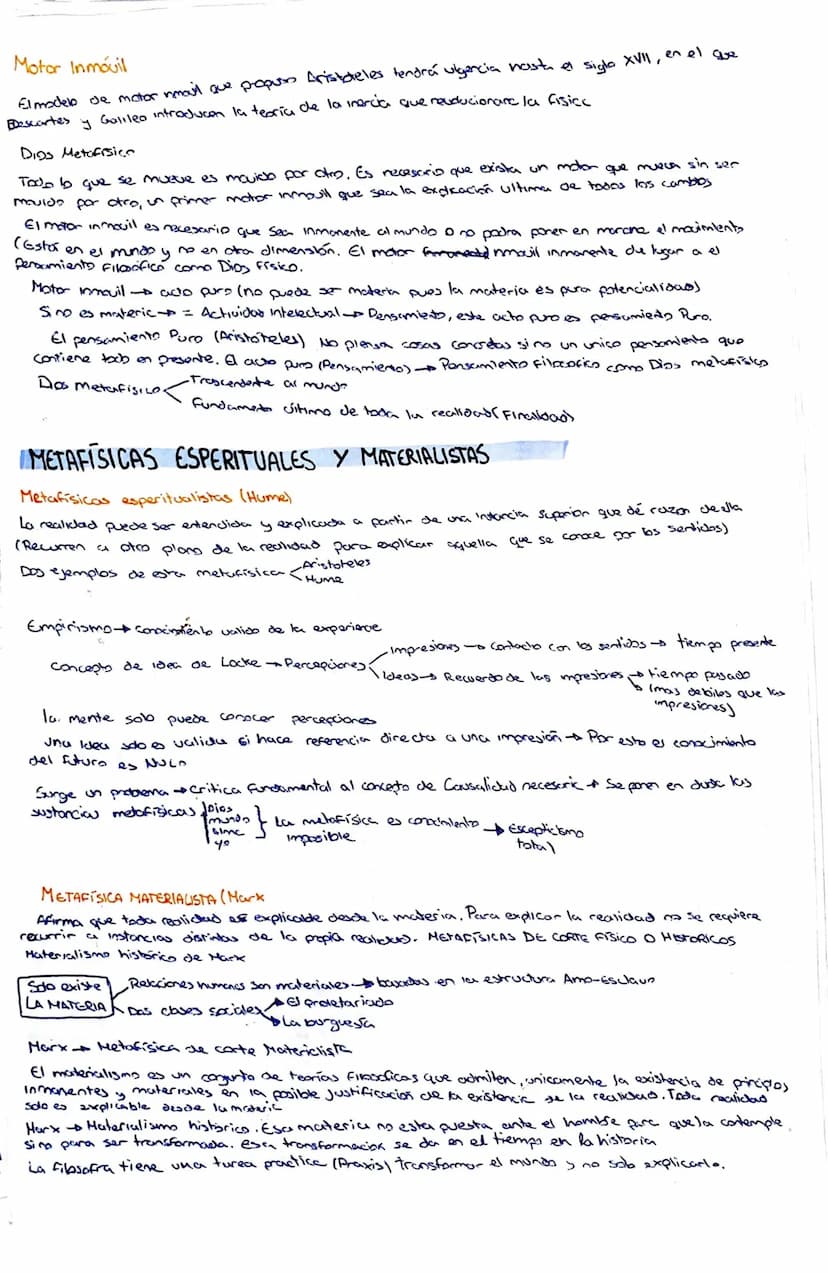 Motor Inmóvil
El modelo de motor inmovil que propuso Aristóteles tendrá vigencia hasta el siglo XVII, en el que
Descartes y Galileo introducen la teoría de la inercia que revolucionara la física
Dios Metafísico
Todo lo que se mueve es movido por otro. Es necesario que exista un motor que mueva sin ser
movido por otro, un primer motor inmovil que sea la explicación ultima de todos los cambios
El motor inmovil es necesario que sea inmanente al mundo o no podra poner en marcha el movimiento
(Estar en el mundo y no en otra dimensión. El motor inmovil inmanente da lugar a el
Pensamiento Filosófico como Dios Físico.
Motor inmovil → acto puro (no puede ser materia pues la materia es pura potencialidad)
Si no es materia → = Actividad Intelectual → Pensamiento, este acto puro es pensamiento Puro.
El pensamiento Puro (Aristóteles) No piensa cosas concretas si no un unico pensamiento que
contiene todo en presente. El acto puro (Pensamiento) → Pensamiento Filosofico como Dios metafísico
Dios metafísico Trascendente al mundo
Fundamento último de toda la realidad (Finalidad)
METAFÍSICAS ESPERITUALES Y MATERIALISTAS
Metafísicas esperitualistas (Hume)
La realidad puede ser entendida y explicada a partir de una instancia superior que dé razon de ella
(Recurren a otro plano de la realidad para explicar aquella que se conoce por los sentidos)
Dos ejemplos de esta metafísica Aristoteles
Hume
Empirismo → conocimiento valido de la experience
Concepto de idea de Locke → Percepciones Impresiones → Contacto con los sentidos → tiempo presente
Ideas → Recuerdo de las impresiones → tiempo pasado
(mas debiles que las
impresiones)
la mente solo puede conocer percepciones
Una idea solo es valida si hace referencia directa a una impresión → Por esto el conocimiento
del futuro es NULO
Surge un problema → Critica fundamental al concepto de Causalidad necesaria → Se ponen en duda las
sustancias metafísicas Dios
mundo
alma
yo
La metafísica es conocimiento
imposible → Escepticismo
total
METAFÍSICA MATERIALISTA (Marx
Afirma que toda realidad es explicable desde la materia. Para explicar la realidad no se requiere
recurrir a instancias distintas de la propia realidad. METAFÍSICAS DE CORTE FÍSICO O HISTORICOS
Materialismo histórico de Marx
Solo existe
LA MATERIA
Relaciones humanas son materiales → basadas en la estructura Amo-Esclavo
Dos clases sociales → El proletariado
→ La burguesía
Marx → Metafísica de corte Materialista
El materialismo es un conjunto de teorías filosoficas que admiten, unicamente la existencia de principios
inmanentes y materiales en la posible justificacion de la existencia de la realidad. Toda realidad
solo es explicable desde la materia
Marx → Materialismo histórico. Esa materia no esta puesta ante el hombre para que la contemple,
sino para ser transformada. Esa transformacion se da en el tiempo en la historia
La filosofia tiene una tarea practica (Praxis) transformar el mundo y no solo explicarlo.